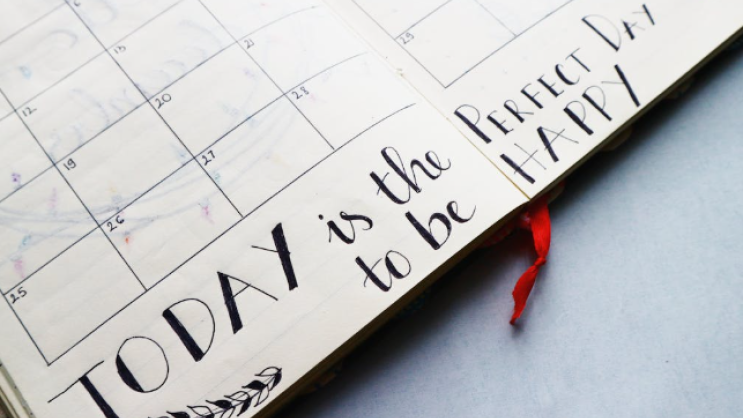 6
12 13
19 20 21
25 26 27 28
29
TODAY is the PERFECT DAY
to be HAPPY